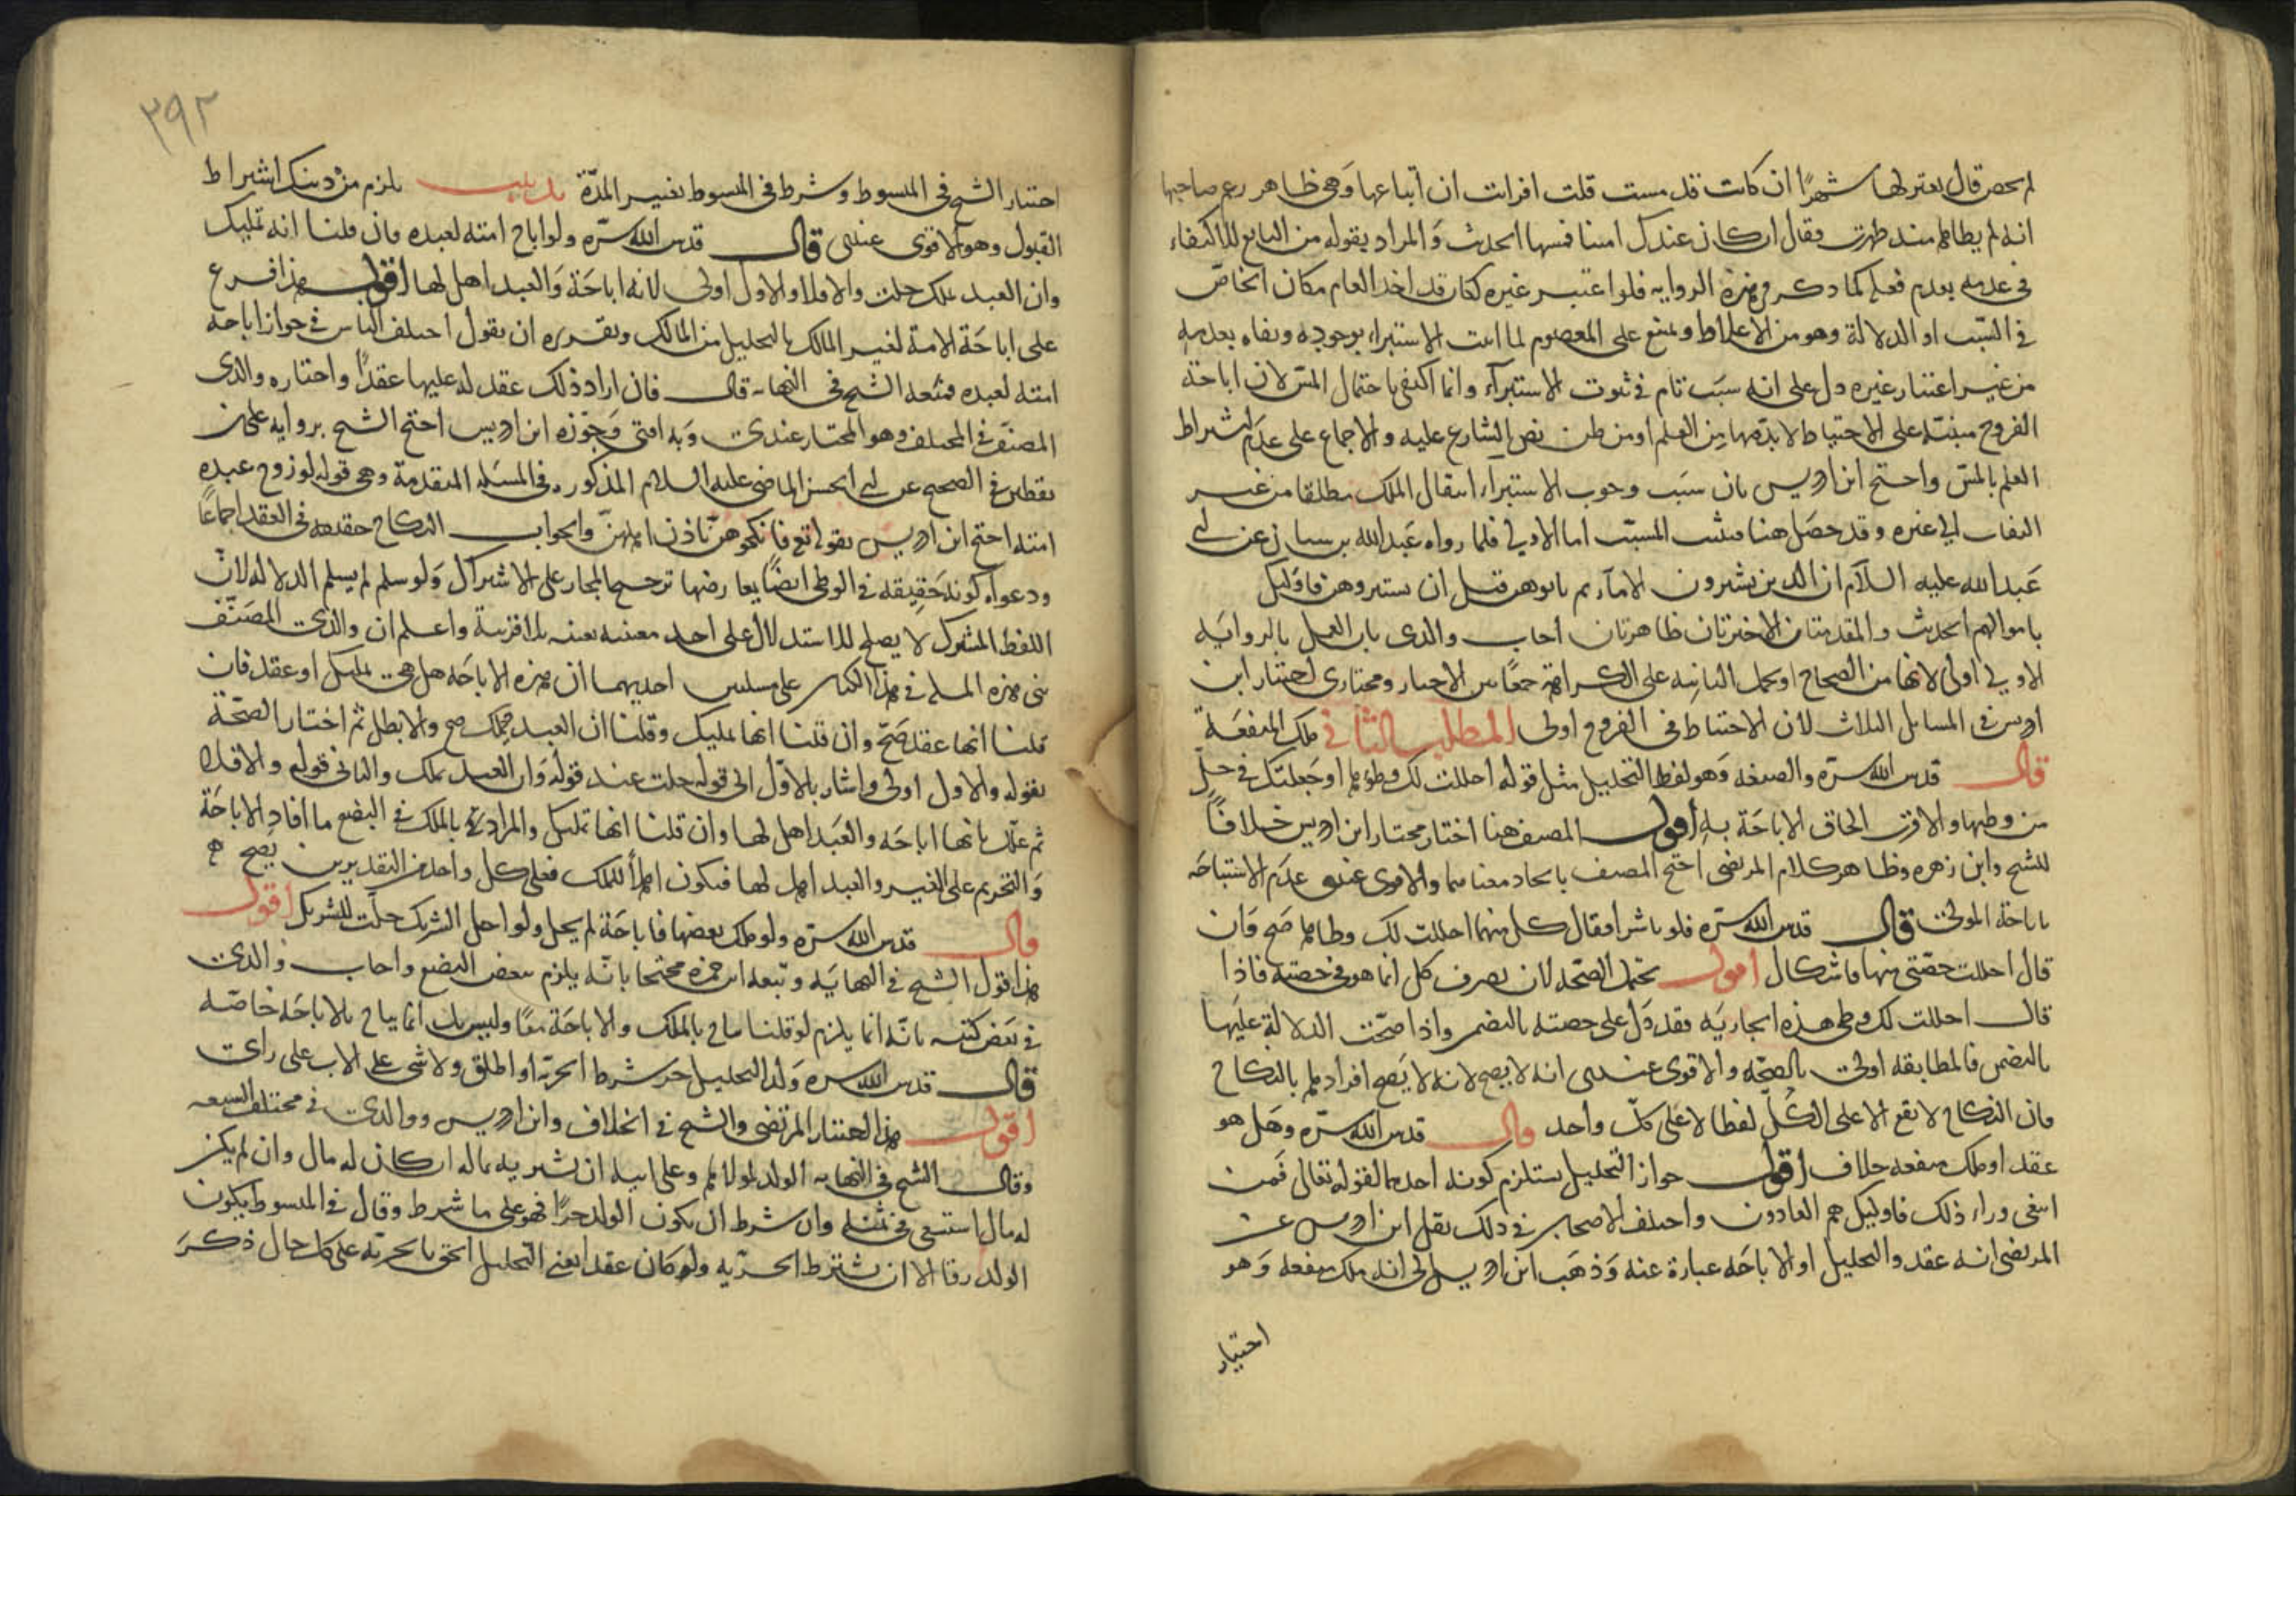 لم يحض قال يعتزلها شهرًا ان كانت قد مست قلت افرايت ان ابتاعها وهي ظاهر زعم صاحبها
انه لم يطاها منذ طهرت فقال ان كان عندك امينا فمسها الحديث والمراد بقوله من البايع للاكتفاء
في عدمه بعدم فعله كما ذكر في هذه الرواية فلو اعتبر غيره لكان قد اخذ العام مكان الخاص
في السبب او الدلالة وهو من الاغلاط ويمنع على المعصوم لما اثبت الاستبراء بوجوده ونفاه بعدمه
من غير اعتبار غيره دل على انه سبب تام في ثبوت الاستبرآء وانما اكتفى باحتمال المس لان اباحة
الفروج مبنية على الاحتياط لا بد فيها من العلم او من ظن نص الشارع عليه والاجماع على عدم اشتراط
العلم بالمس واحتج ابن ادريس بان سبب وجوب الاستبراء انتقال الملك مطلقا من غير
التفات الى غيره وقد حصل هنا فيثبت المسبب اما الاولى فلما رواه عبد الله بن سنان عن ابي
عبد الله عليه السلام ان الذين يشترون الاماء ثم ياتوهن قبل ان يستبروهن فاوليك
باموالهم الحديث والمقدمتان الاخيرتان ظاهرتان اجاب والدى بان العمل بالرواية
الاولى اولى لانها من الصحاح او يحمل الثانية على الكراهة جمعًا بين الاخبار ومختاري اختيار ابن
ادريس في المسايل الثلاث لان الاحتياط في الفروج اولى المطلب الثاني ملك المنفعة
قال قدس الله سره والصيغه وهو لفظ التحليل مثل قوله احللت لك وطؤها او جعلتك في حل
من وطيها والاقرب الحاق الاباحة به اقول المصنف هنا اختار مختار ابن ادريس خلافًا
للشيخ وابن زهره وظاهر كلام المرتضى احتج المصنف باتحاد معناهما والاقوى عندي عدم الاستباحه
باباحة المولى قال قدس الله سره فلو باشرا فقال كل منهما احللت لك وطاها صح وان
قال احللت حصتي منها فاشكال اقول يحتمل الصحة لان تصرف كل انما هو في حصته فاذا
قال احللت لك وطي هذه الجارية فقد دل على حصته بالتضمن واذا صحت الدلالة عليها
بالتضمن فالمطابقه اولى بالصحه والاقوى عندي انه لا يصح لانه لا يصح افرادها بالنكاح
فان النكاح لا يقع الا على الكل لفظا لا على كل واحد قال قدس الله سره وهل هو
عقد او ملك منفعه خلاف اقول جواز التحليل يستلزم كونه احدهما لقوله تعالى فمن
ابتغى وراء ذلك فاوليك هم العادون واختلف الاصحاب في ذلك نقل ابن ادريس عن
المرتضى انه عقد والتحليل او الاباحه عبارة عنه وذهب ابن ادريس الى انه ملك منفعه وهو
اختيار
٣٩٢
اختيار الشيخ في المبسوط وشرط في المبسوط تعيين المدّة تذنيب يلزم من ذينك اشتراط
القبول وهو الاقوى عندي قال قدس الله سره ولو اباح امته لعبده فان قلنا انه تمليك
وان العبد يملك حلت والا فلا والاول اولى لانه اباحة والعبد اهل لها اقول هذا فرع
على اباحة الامة لغير المالك بالتحليل من المالك وتقريره ان نقول اختلف الناس في جواز اباحة
امته لعبده فمنعه الشيخ في النهاية قال فان اراد ذلك عقد له عليها عقدًا واختاره والدى
المصنف في المختلف وهو المختار عندي وبه افتى وجوزه ابن ادريس احتج الشيخ برواية علي بن
يقطين في الصحيح عن ابي الحسن الماضي عليه السلام المذكوره في المسئله المتقدمة وهي قوله لو زوج عبده
امته احتج ابن ادريس بقوله تع فانكحوهن باذن اهلهن والجواب النكاح حقيقه في العقد اجماعًا
ودعواه كونه حقيقة في الوطى ايضًا يعارضها ترجيح المجاز على الاشتراك ولو سلم لم يسلم الدلاله لان
اللفظ المشترك لا يصلح للاستدلال على احد معنييه بعينه بلا قرينة واعلم ان والدى المصنف
بنى هذه المسله في هذا الكتاب على مسلتين احديهما ان هذه الاباحه هل هي تمليك او عقد فان
قلنا انها عقد صح وان قلنا انها تمليك وقلنا ان العبد يملك صح والا بطل ثم اختار الصحة
بقوله والاول اولى واشار بالاول الى قوله حلت عند قوله وان العبد يملك والثاني قوله والا فلا
ثم علل بانها اباحه والعبد اهل لها وان قلنا انها تمليك والمراد بالملك في البضع ما افاد الاباحة
والتحريم على الغير والعبد اهل لها فيكون اهلًا للملك فعلى كل واحد من التقديرين يصح
قال قدس الله سره ولو ملك بعضها فاباحته لم يحل ولو احل الشريك حلت للشريك اقول
هذا قول الشيخ في النهاية وتبعه ابن حمزه محتجا بانه يلزم تبعض البضع واجاب والدي
في بعض كتبه بانه انما يلزم لو قلنا يباح بالملك والاباحة معًا وليس بل انما يباح بالاباحه خاصه
قال قدس الله سره وولد التحليل حر شرط الحرية او اطلق ولا شى على الاب على راى
اقول هذا اختيار المرتضى والشيخ في الخلاف وابن ادريس ووالدى في مختلف الشيعه
وقال الشيخ في النهاية الولد لمولاها وعلى ابيه ان يشتريه بماله ان كان له مال وان لم يكن
له مال استسعى في ثمنه وان شرط ان يكون الولد حرًا فهو على ما شرط وقال في المبسوط يكون
الولد رقا الا ان يشترط الحرية ولو كان عقد اعني التحليل الحق بالحرية على كل حال ذكر